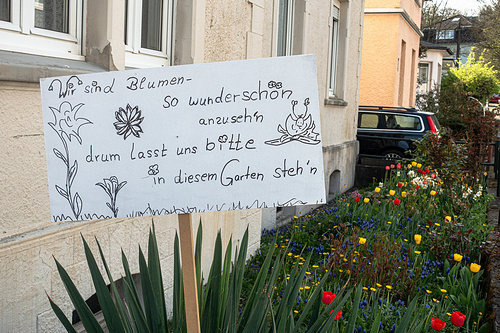 Wir sind Blumen-
so wunderschön
anzuseh'n
drum lasst uns bitte
in diesem Garten steh'n